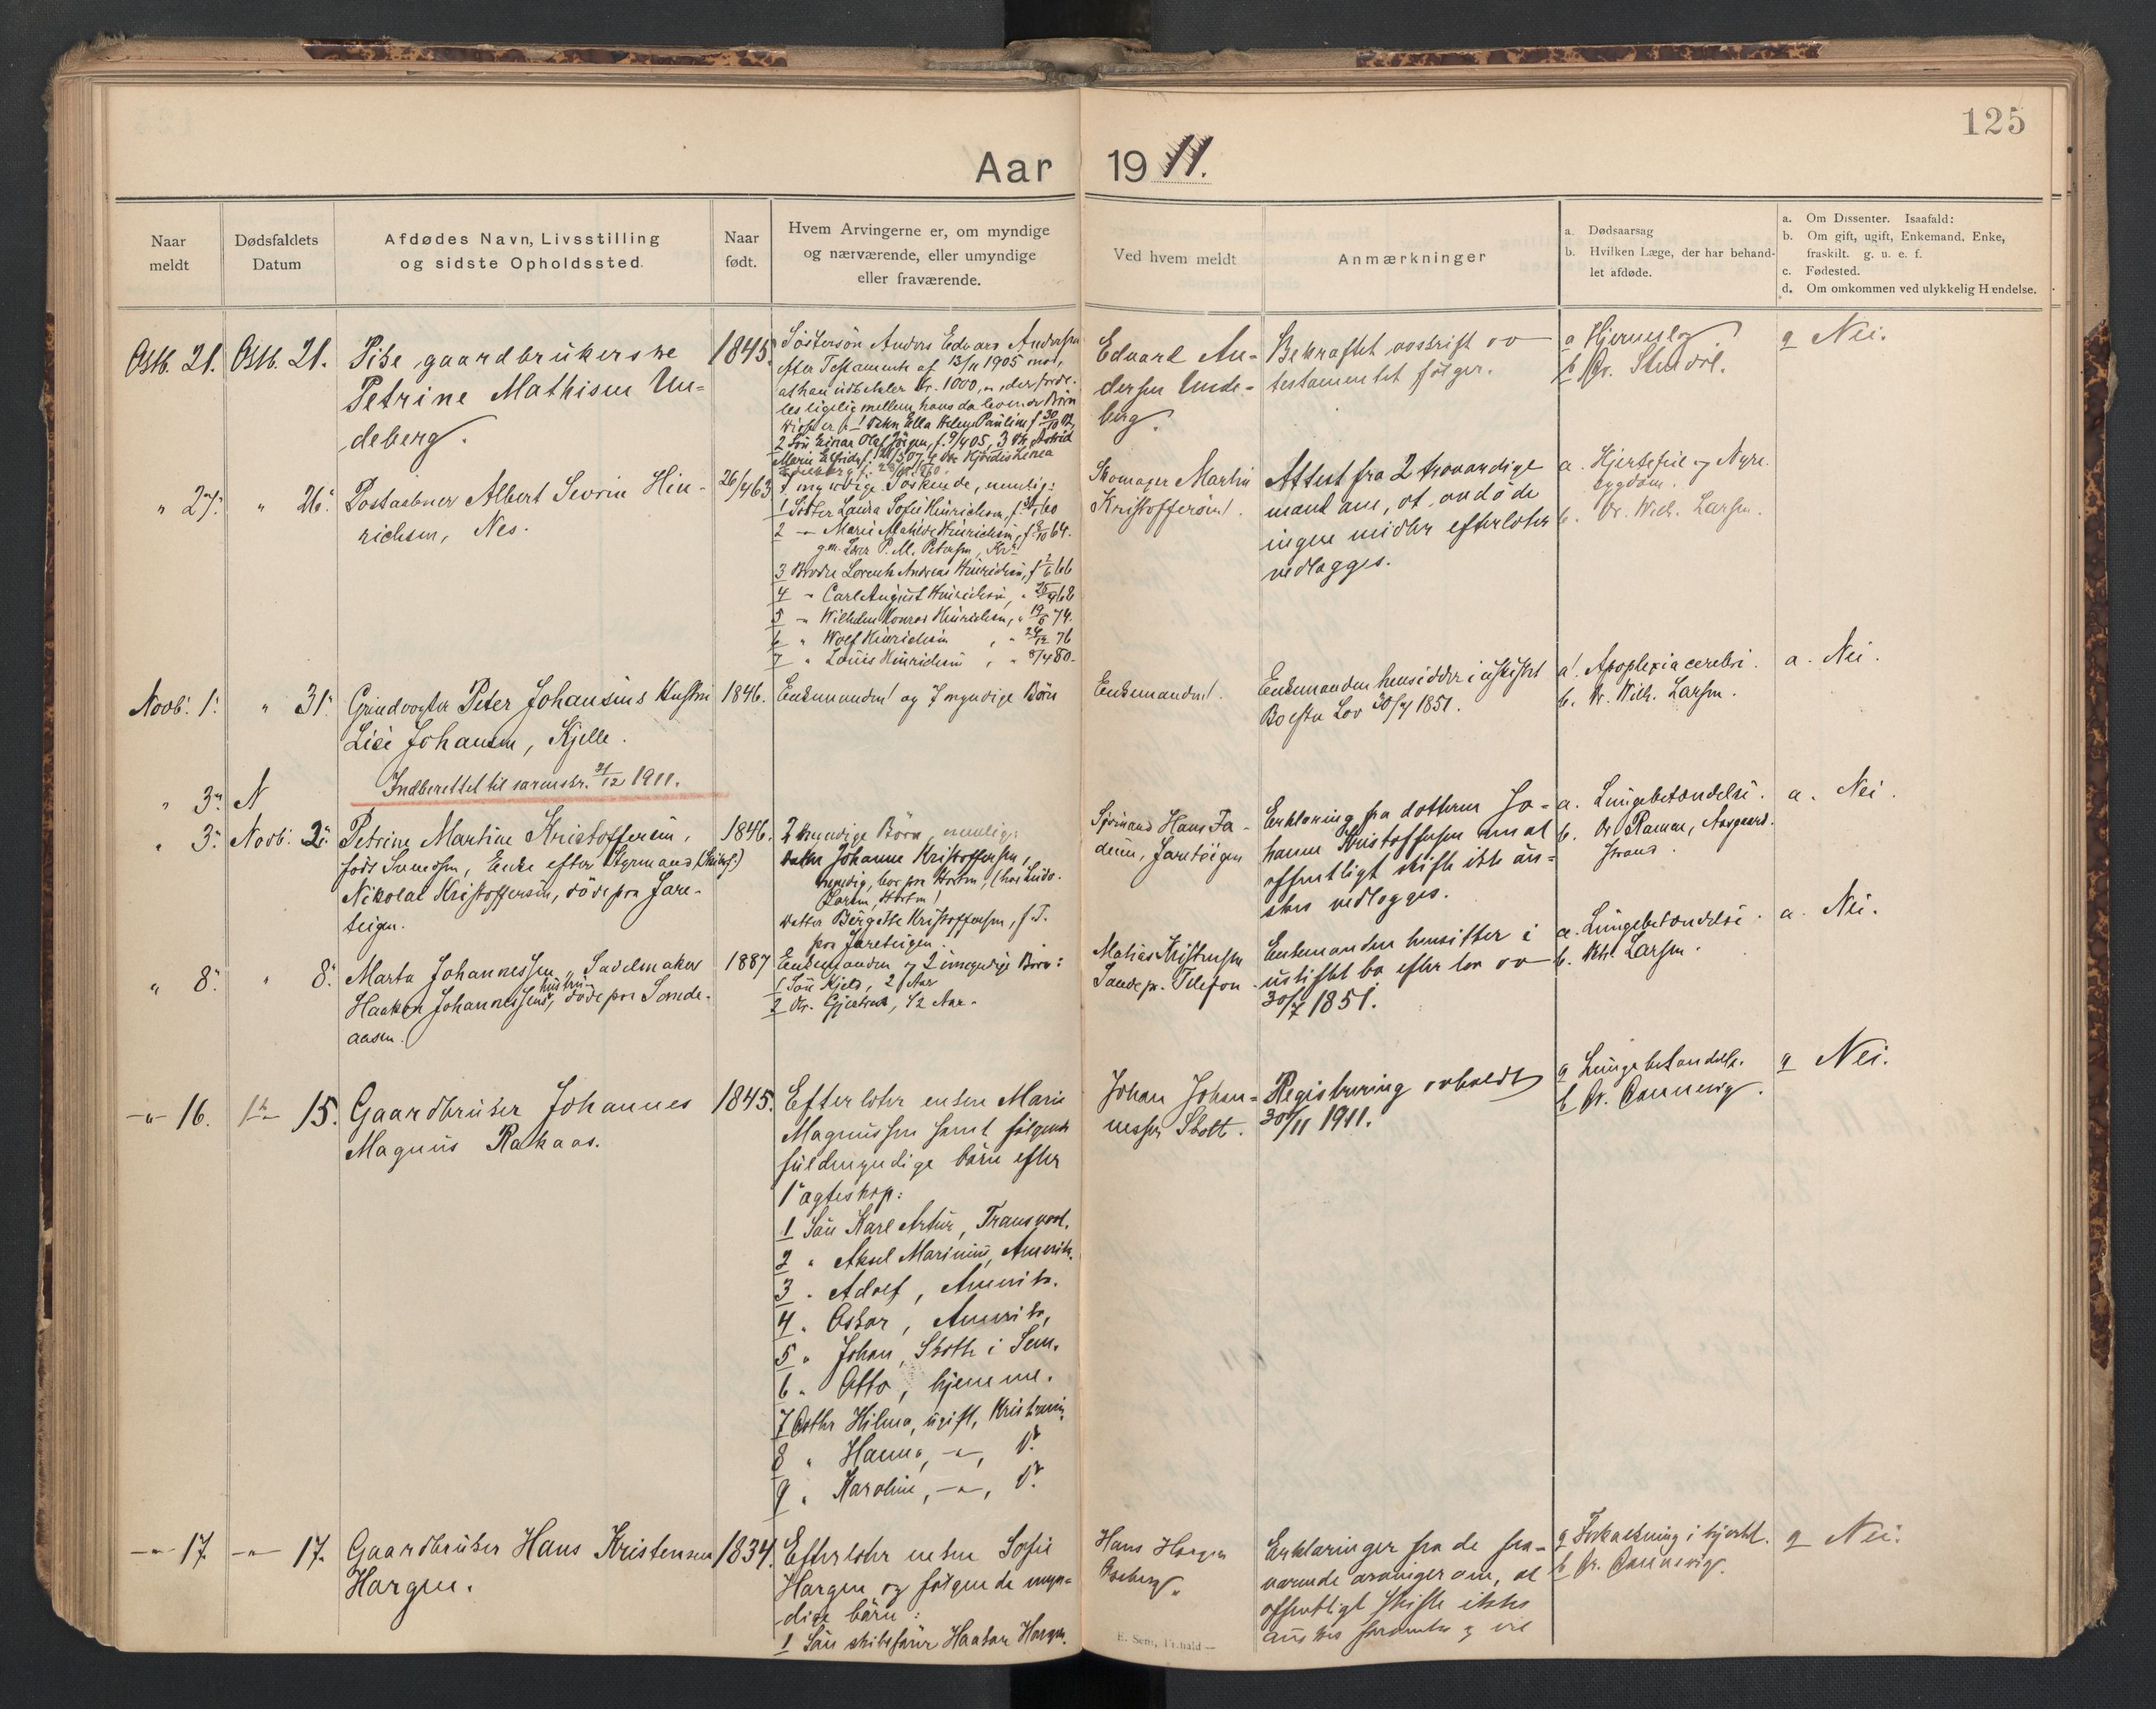 125
Aar 1911.
Naar meldt
Dødsfaldets Datum
Afdødes Navn, Livsstilling og sidste Opholdssted.
Naar født.
Hvem Arvingerne er, om myndige og nærværende, eller umyndige eller fraværende.
Ved hvem meldt
Anmærkninger
a. Dødsaarsag
b. Hvilken Læge, der har behandlet afdøde.
a. Om Dissenter. Isaafald:
b. Om gift, ugift, Enkemand, Enke, fraskilt. g. u. e. f.
c. Fødested.
d. Om omkommen ved ulykkelig Hændelse.
Oktb. 21. Oktb. 21.
Pike gaardbrukerske
Petrine Mathisen Un-
deberg.
1845.
Søstersøn Anders Edvard Andersen
efter Testamente af 13/11 1905 mot,
at han udbetaler kr. 1000,
les ligelig mellem hans da levende Børn
2 Søn Einar Olaf Jørgen, f. 9/4 05, 3 Dtr. Astrid
Eduard An-
dersen Unde-
berg.
Bekræftet avskrift av
testamentet følger.
a Hjerneslag
b Dr. Stendol.
a Nei.
" 27. " 26.
Postaabner Albert Sevrin Hin-
richsen, Nes.
26/4 63
7 myndige Søskende, nemlig:
1 Søster Laura Sofie Hinrichsen,
2 — Marie Matilde Hinrichsen,
gm. P. M. Petersen, Kr.
3 Broder Lorentz Andreas Hinrichsen,
4 " Carl August Hinrichsen,
5 " Wilhelm Konrad Hinrichsen, " 19/5 74.
6 " Wolf Hinrichsen, " 24/12 76
7 " Louis Hinrichsen, " 8/4 80.
Skomager Martin
Kristoffersen.
Attest fra 2 troværdige
mænd om, at avdøde
ingen midler efterlater
vedlægges.
a. Hjertefeil og Nyre-
sygdom.
b. Dr. Wilh. Larsen.
Novb. 1. " 31.
Grindvogter Peter Johansens Hustru
Lise Johansen, Kjelle.
1846.
Enkemanden og 7 myndige Børn
Enkemanden.
Enkemanden hensidder i uskiftet
Bo efter Lov 30/7 1851.
a. Apoplexia cerebri.
b. Dr. Wilh. Larsen.
a. Nei.
" 3. N
Indberettet til sorenskr. 31/12 1911.
" 3. Novb. 2.
Petrine Martine Kristoffersen,
født Svendsen, Enke efter Styrmand
Nikolai Kristoffersen, døde paa Jare-
teigen.
1846.
2 myndige Børn, nemlig:
Datter Johanne Kristoffersen,
myndig, bor paa Horten,
Larsen, Horten
Datter Bergitte Kristoffersen, f. T.
paa Jareteigen.
Sjømand Hans Fa-
dum, Jareteigen
Erklæring fra datteren Jo-
hanne Kristoffersen om at
offentligt skifte ikke øn-
skes vedlægges.
a. Lungebetændelse.
b. Dr Ramm, Aasgaard-
strand.
a. Nei.
" 8. " 8.
Marta Johannessen, Sadelmaker
Haakon Johannessens hustru, døde paa Sande-
aasen.
1887
Enkemanden og 2 umyndige Børn:
1 Søn Kjeld, 2 Aar
2 Dr. Gjertrud, 1/2 Aar.
Matias Kristensen
Sande pr. Telefon.
Enkemanden hensitter i
uskiftet bo efter lov av
30/7 1851.
a. Lungebetændelse.
b. Wilh. Larsen.
a. Nei.
—"— 16. 15.
Gaardbruker Johannes
Magnus Rakaas.
1845.
Efterlater enken Marie
Magnussen samt følgende
fuldmyndige børn efter
1' ægteskap:
1 Søn Karl Artur, Transvaal.
2 " Aksel Marinius, Amerika.
3 " Adolf, Amerika.
4 " Oskar, Amerika,
5 " Johan, Skotte i Sem.
6 " Otto, hjemme.
7 Datter Hilma, ugift, Kristiania
8 " Hanna, —"—, Do.
9 " Karoline, —"—, Do.
Johan Johan-
nessen Skotte.
Registrering avholdt
30/11 1911.
a Lungebetændelse.
b Dr. Dannevig.
a Nei.
—"— 17. —"— 17.
Gaardbruker Hans Kristensen
Horgen.
1834.
Efterlater enken Sofie
Horgen og følgende myn-
dige børn:
1 Søn skibsfører Haakon Horgen.
Hans Horgen
Oseberg.
Erklæringer fra de fra-
værende arvinger om, at
offentligt skifte ikke
ønskes
a Forkalkning i hjertet.
b Dr. Dannevig.
a Nei.
E. Sem, Fr.hald —